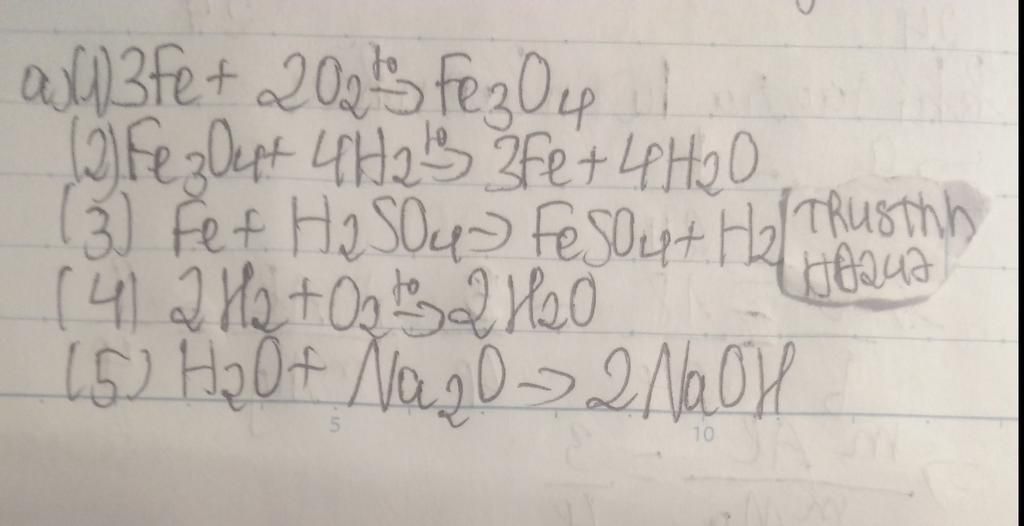 a) (1) 3Fe + 2O2 t0→ Fe3O4
(2) Fe3O4 + 4H2 t0→ 3Fe + 4H2O
(3) Fe + H2SO4 → FeSO4 + H2
(4) 2H2 + O2 t0→ 2H2O
(5) H2O + Na2O → 2NaOH
5 10